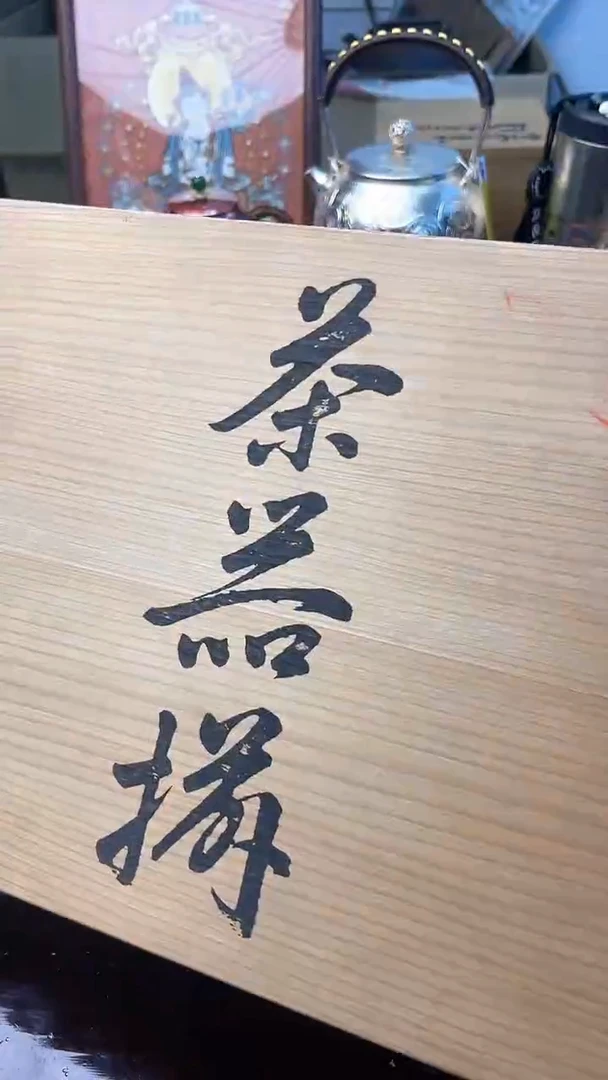 茶器揃